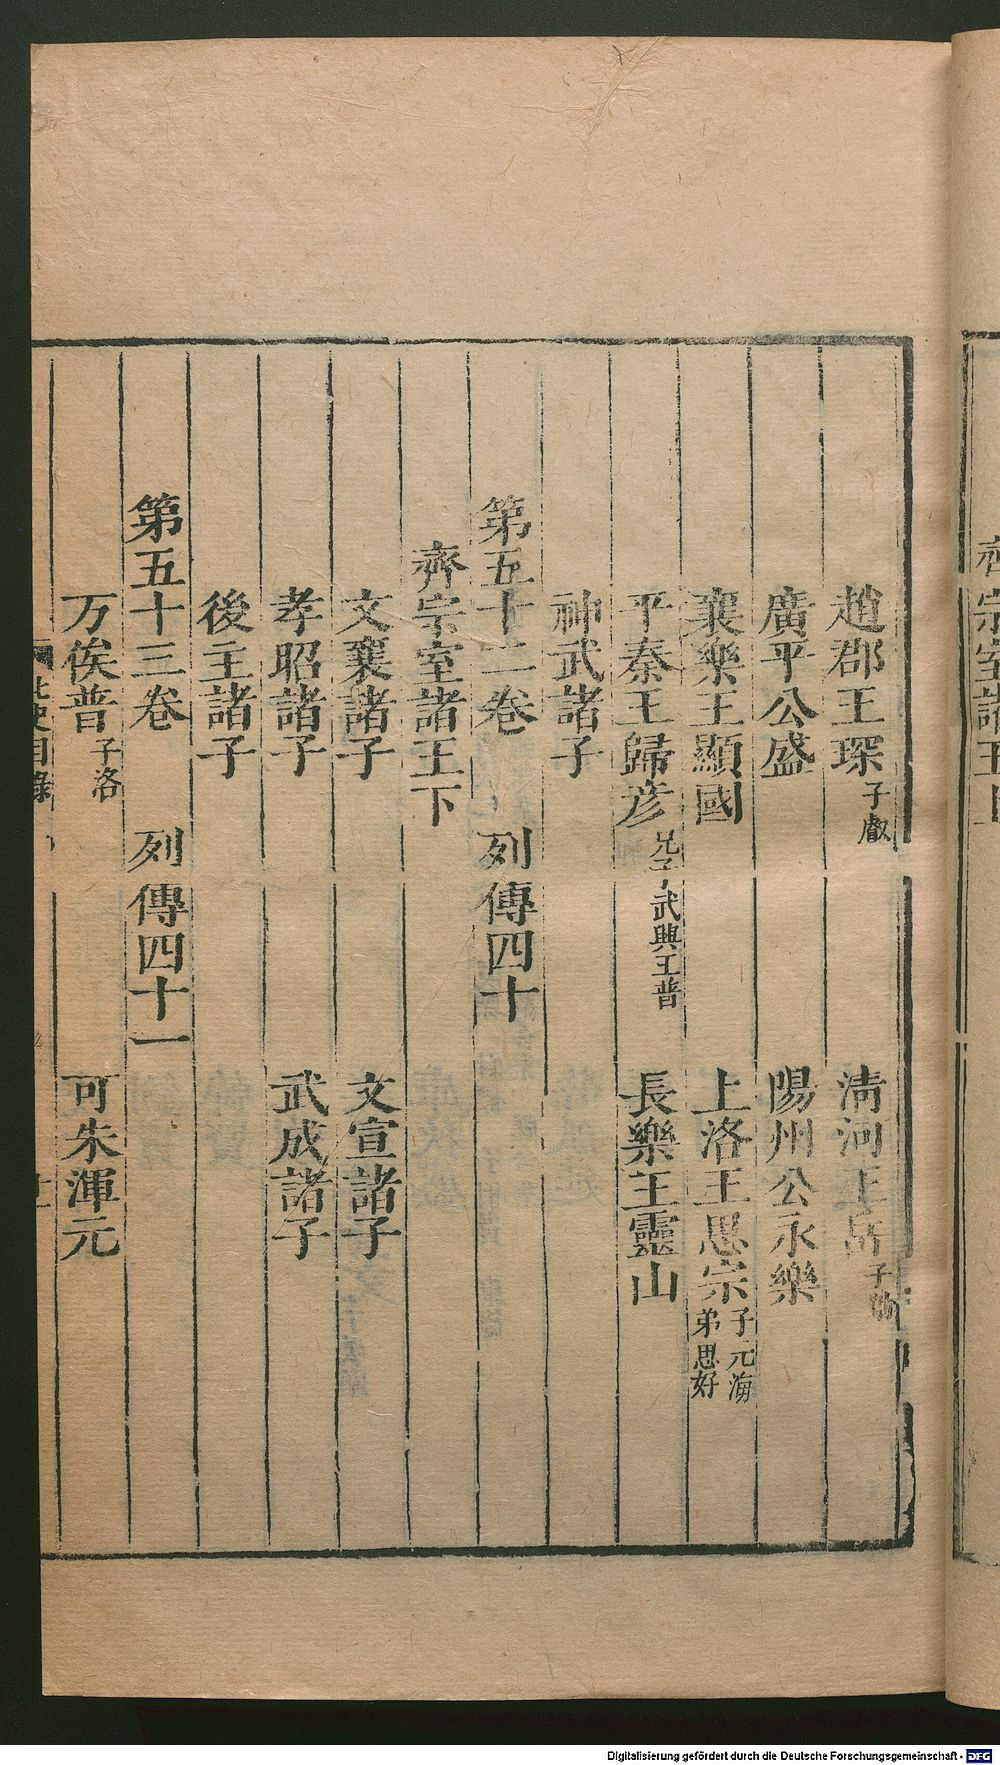 齊宗室諸王上
趙郡王琛子叡　清河王岳子勱
廣平公盛　陽州公永樂
襄樂王顯國　上洛王思宗子元海弟思好
平秦王歸彦兄子武興王普　長樂王靈山
神武諸子
第五十二卷　列傳四十
齊宗室諸王下
文襄諸子　文宣諸子
孝昭諸子　武成諸子
後主諸子
第五十三卷　列傳四十一
万俟普子洛　可朱渾元
北史目錄
Digitalisierung gefördert durch die Deutsche Forschungsgemeinschaft - DFG